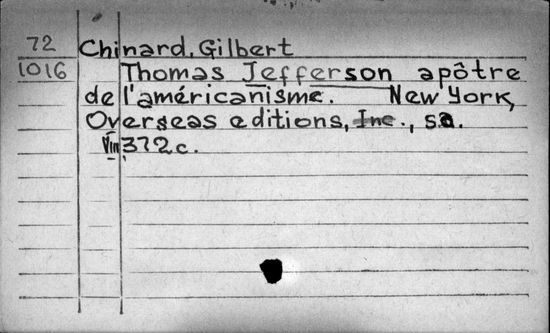 72 Chinard, Gilbert
1016 Thomas Jefferson apôtre
de l'américanisme. New York,
Overseas editions, Inc., sa.
VIII 372c.